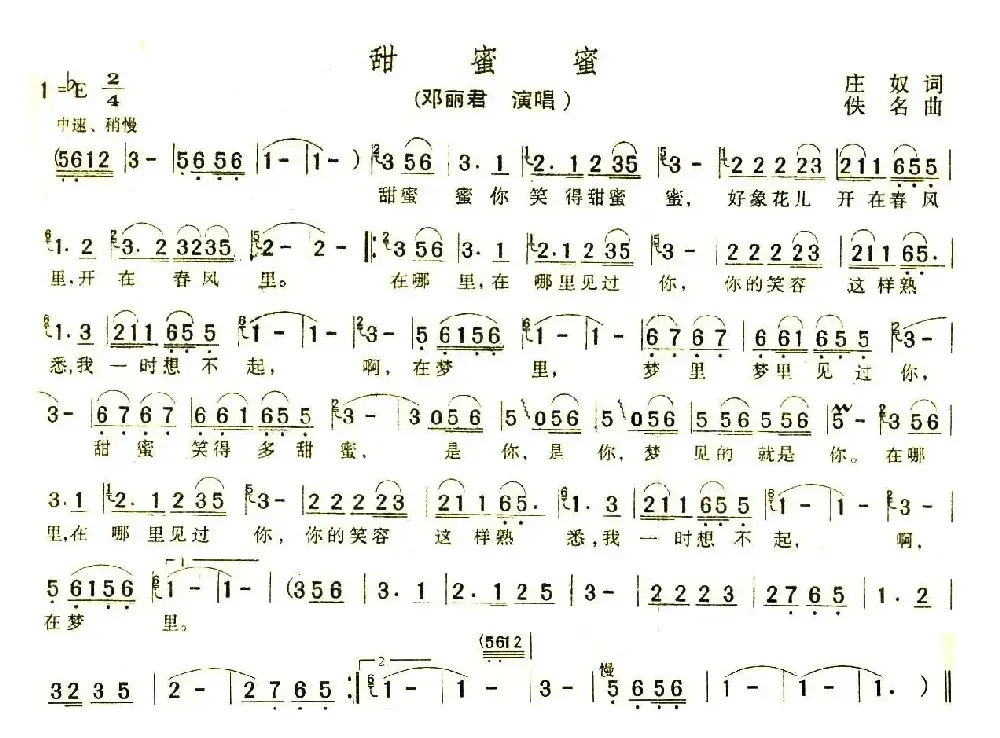 甜 蜜 蜜
1=♭E 2/4
(邓丽君 演唱)
庄 奴 词
佚 名 曲
中速、稍慢
(5612 | 3 - | 56 56 | 1 - | 1 - ) | 3 56 | 3. 1 | 2. 1 2 35 | 3 - | 2 2 2 23 | 211 655 |
甜蜜 蜜你 笑得甜蜜 蜜, 好象花儿 开在春风
1. 2 | 3. 2 3235 | 2 - | 2 - |: 3 56 | 3. 1 | 2. 1 2 35 | 3 - | 2 2 2 23 | 211 65. |
里,开在 春风 里。 在哪 里,在 哪里见过 你, 你的笑容 这样熟
1. 3 | 211 655 | 1 - | 1 - | 3 - | 5 6156 | 1 - | 1 - | 6 7 6 7 | 661 655 | 3 - |
悉,我 一时想不起, 啊,在梦 里, 梦里 梦里见过你,
3 - | 6 7 6 7 | 661 655 | 3 - | 3 056 | 5 056 | 5 056 | 5 56 5 56 | 5 - | 3 56 |
甜蜜 笑得多甜蜜, 是 你,是 你,梦 见的就是 你。在哪
3. 1 | 2. 1 2 35 | 3 - | 2 2 2 23 | 211 65. | 1. 3 | 211 655 | 1 - | 1 - | 3 - |
里,在 哪里见过 你, 你的笑容 这样熟 悉,我 一时想不起, 啊,
1
5 6156 | 1 - | 1 - | (3 56 | 3. 1 | 2. 1 2 5 | 3 - | 2 2 2 3 | 2 7 6 5 | 1. 2 |
在梦 里。
(5612
2
慢
3 2 3 5 | 2 - | 2 7 6 5 :| 1 - | 1 - | 3 - | 5 656 | 1 - | 1 - | 1 . ) ‖